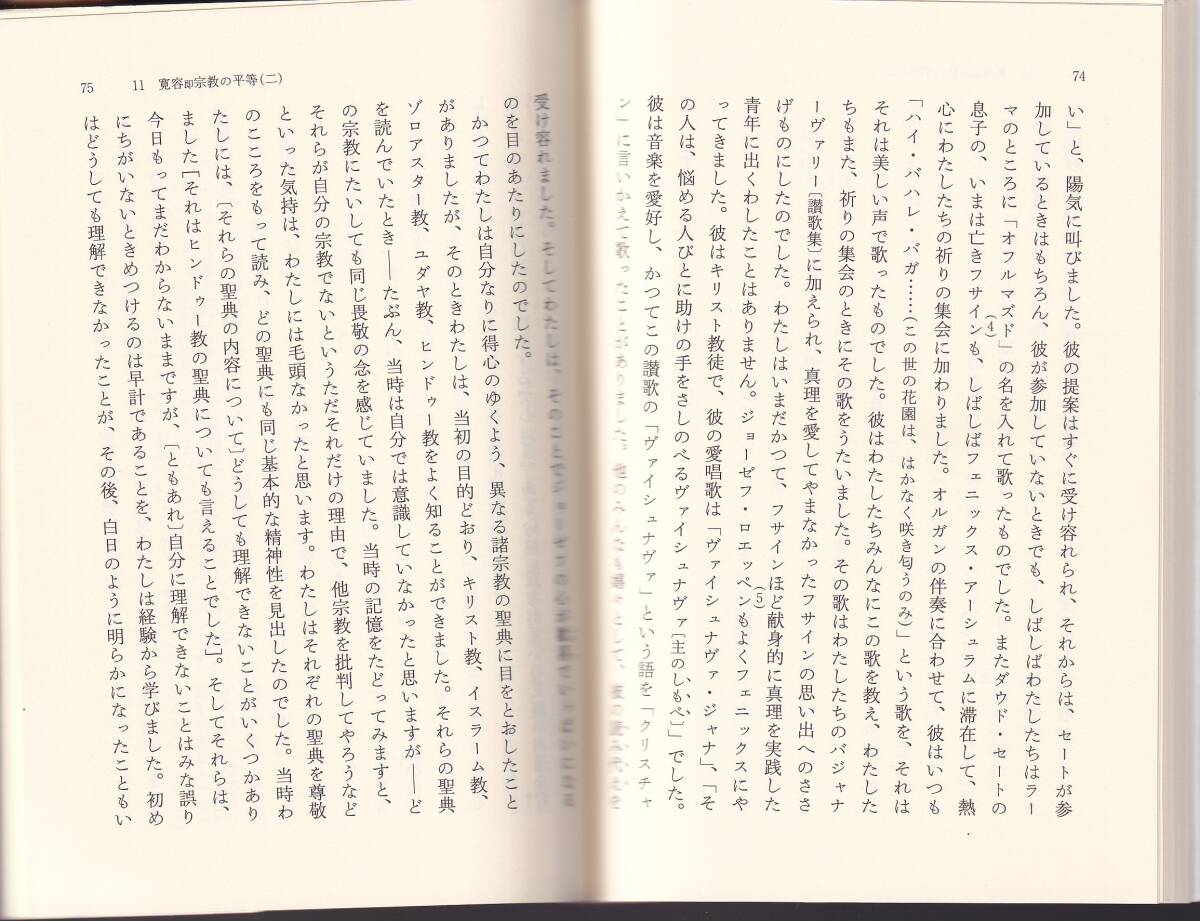 74
い」と、陽気に叫びました。彼の提案はすぐに受け容れられ、それからは、セートが参
加しているときはもちろん、彼が参加していないときでも、しばしばわたしたちはラー
マのところに「オフルマズド」(4)の名を入れて歌ったものでした。またダウド・セートの
息子の、いまは亡きフサインも、しばしばフェニックス・アーシュラムに滞在して、熱
心にわたしたちの祈りの集会に加わりました。オルガンの伴奏に合わせて、彼はいつも
「ハイ・バハレ・バガ……(この世の花園は、はかなく咲き匂うのみ)」という歌を、それは
それは美しい声で歌ったものでした。彼はわたしたちみんなにこの歌を教え、わたした
ちもまた、祈りの集会のときにその歌をうたいました。その歌はわたしたちのバジャナ
ーヴァリー〔讃歌集〕に加えられ、真理を愛してやまなかったフサインの思い出へのささ
げものにしたのでした。わたしはいまだかつて、フサインほど献身的に真理を実践した
青年に出くわしたことはありません。ジョーゼフ・ロエッペン(5)もよくフェニックスにや
ってきました。彼はキリスト教徒で、彼の愛唱歌は「ヴァイシュナヴァ・ジャナ」、「そ
の人は、悩める人びとに助けの手をさしのべるヴァイシュナヴァ〔主のしもべ〕」でした。
彼は音楽を愛好し、かつてこの讃歌の「ヴァイシュナヴァ」という語を「クリスチャ
ン」に言いかえて歌ったことがありました。他のみんなも嬉々として、彼の読み代えを
75 11 寛容即宗教の平等(二)
受け容れました。そしてわたしは、そのことでジョーゼフの心が歓喜でいっぱいになる
のを目のあたりにしたのでした。
かつてわたしは自分なりに得心のゆくよう、異なる諸宗教の聖典に目をとおしたこと
がありましたが、そのときわたしは、当初の目的どおり、キリスト教、イスラーム教、
ゾロアスター教、ユダヤ教、ヒンドゥー教をよく知ることができました。それらの聖典
を読んでいたとき――たぶん、当時は自分では意識していなかったと思いますが――ど
の宗教にたいしても同じ畏敬の念を感じていました。当時の記憶をたどってみますと、
それらが自分の宗教でないというただそれだけの理由で、他宗教を批判してやろうなど
といった気持は、わたしには毛頭なかったと思います。わたしはそれぞれの聖典を尊敬
のこころをもって読み、どの聖典にも同じ基本的な精神性を見出したのでした。当時わ
たしには、〔それらの聖典の内容について〕どうしても理解できないことがいくつかあり
ました〔それはヒンドゥー教の聖典についても言えることでした〕。そしてそれらは、
今日もってまだわからないままですが、〔ともあれ〕自分に理解できないことはみな誤り
にちがいないときめつけるのは早計であることを、わたしは経験から学びました。初め
はどうしても理解できなかったことが、その後、白日のように明らかになったこともい